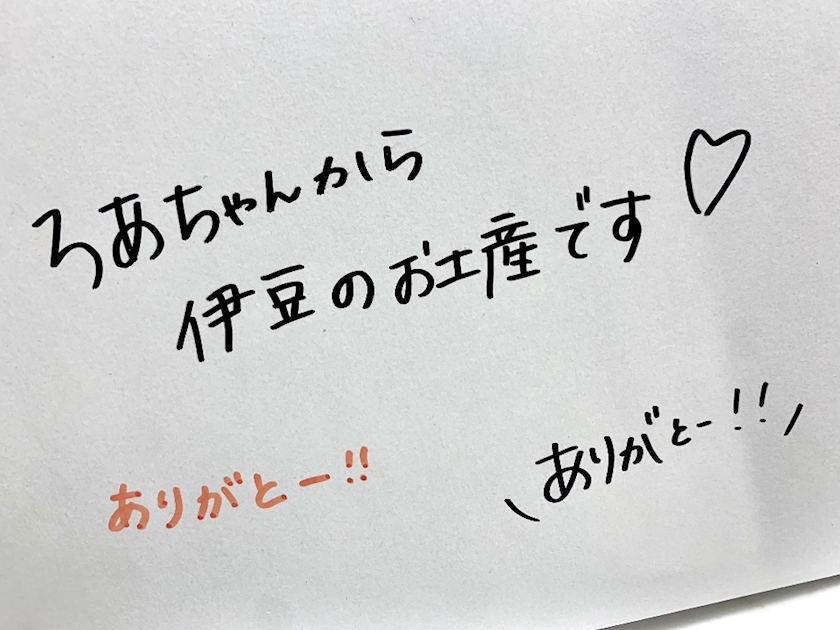 ろあちゃんから
伊豆のお土産です♡
ありがとー!!
\ありがとー!!/